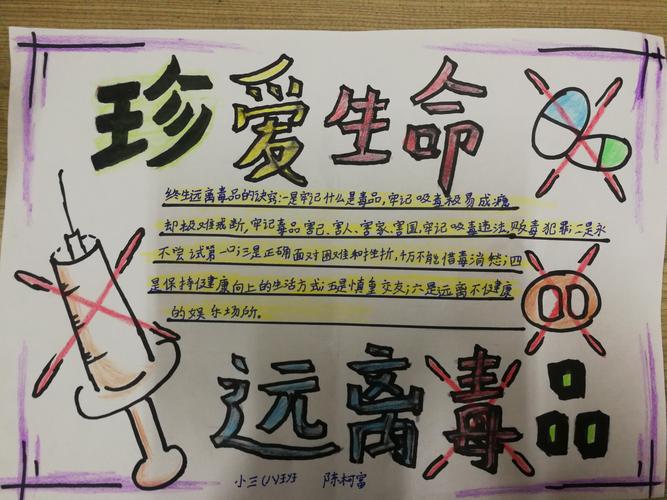 珍爱生命
终生远离毒品的诀窍:一是牢记什么是毒品,牢记吸毒极易成瘾
却极难戒断,牢记毒品害己、害人、害家、害国,牢记吸毒违法,贩毒犯罪;二是永
不尝试第一口;三是正确面对困难和挫折,千万不能借毒消愁;四
是保持健康向上的生活方式;五是慎重交友;六是远离不健康
的娱乐场所。
远离毒品
小三(1)班 陈柯富